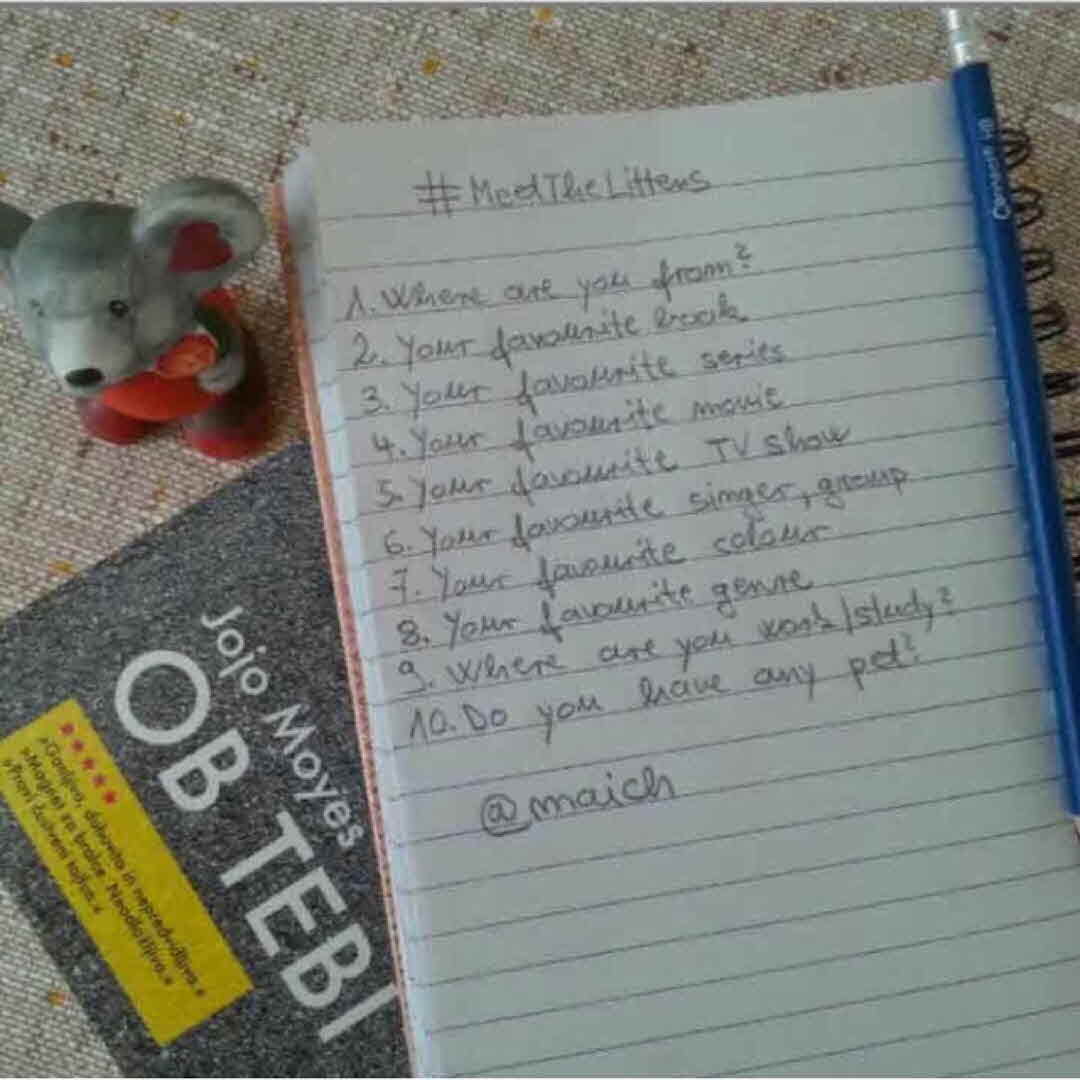 #MeetTheLittens
1. Where are you from?
2. Your favourite book
3. Your favourite series
4. Your favourite movie
5. Your favourite TV show
6. Your favourite singer, group
7. Your favourite colour
8. Your favourite genre
9. Where are you work/study?
10. Do you have any pet?
@maich
Jojo Moyes
OB TEBI
»Ganljiva, duhovita in nepredvidljiva.«
»Nagnei se bralce.